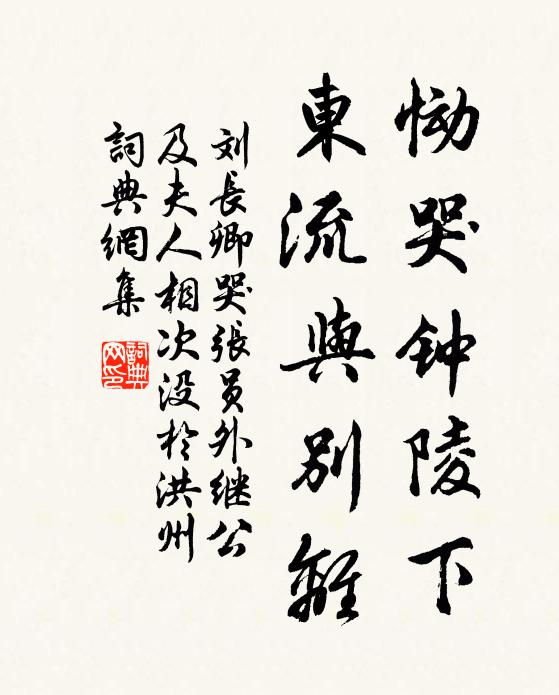 恸哭钟陵下
東流與别離
刘長卿哭張员外继公
及夫人相次没於洪州
詞典網集
詞典網印